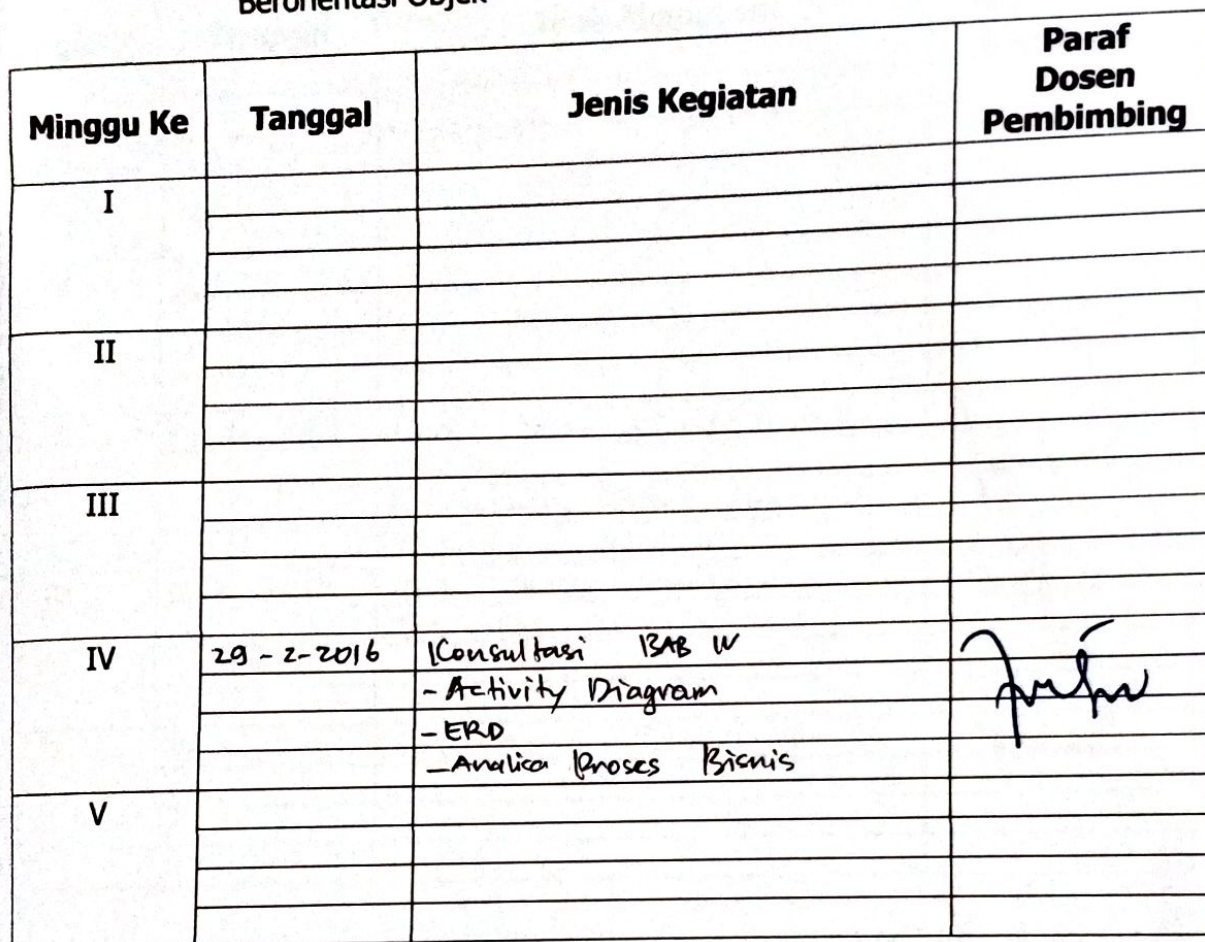 Berorientasi Objek
Minggu Ke Tanggal Jenis Kegiatan Paraf Dosen Pembimbing
I
II
III
IV 29-2-2016 Konsultasi BAB IV
- Activity Diagram
- ERD
- Analisa Proses Bisnis
V